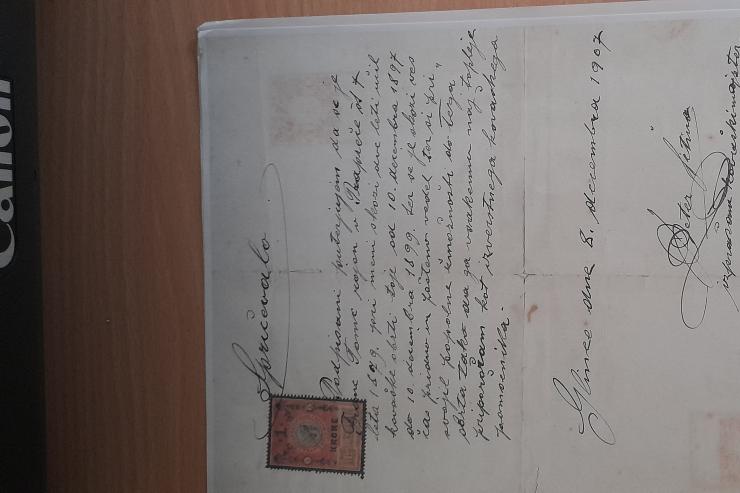 Canon
Spričevalo.
1
KRONE
Podpisani potrjujem da se je
Tome rojen v Prapreče št 7.
leta 1879, pri meni skozi dve leti učil
kovaške obrti toje od 10. decembra 1897
do 10. decembra 1899. ter se je skozi ves
čas pridno in pošteno vedel ter si pri,,
svojil popolne zmožnosti do tega
tako da ga vsakemu naj topleje
priporočam kot izverstnega kovaškega
pomočnika.
Glince dne 8. decembra 1907
Peter
izprašan kovaški mojster